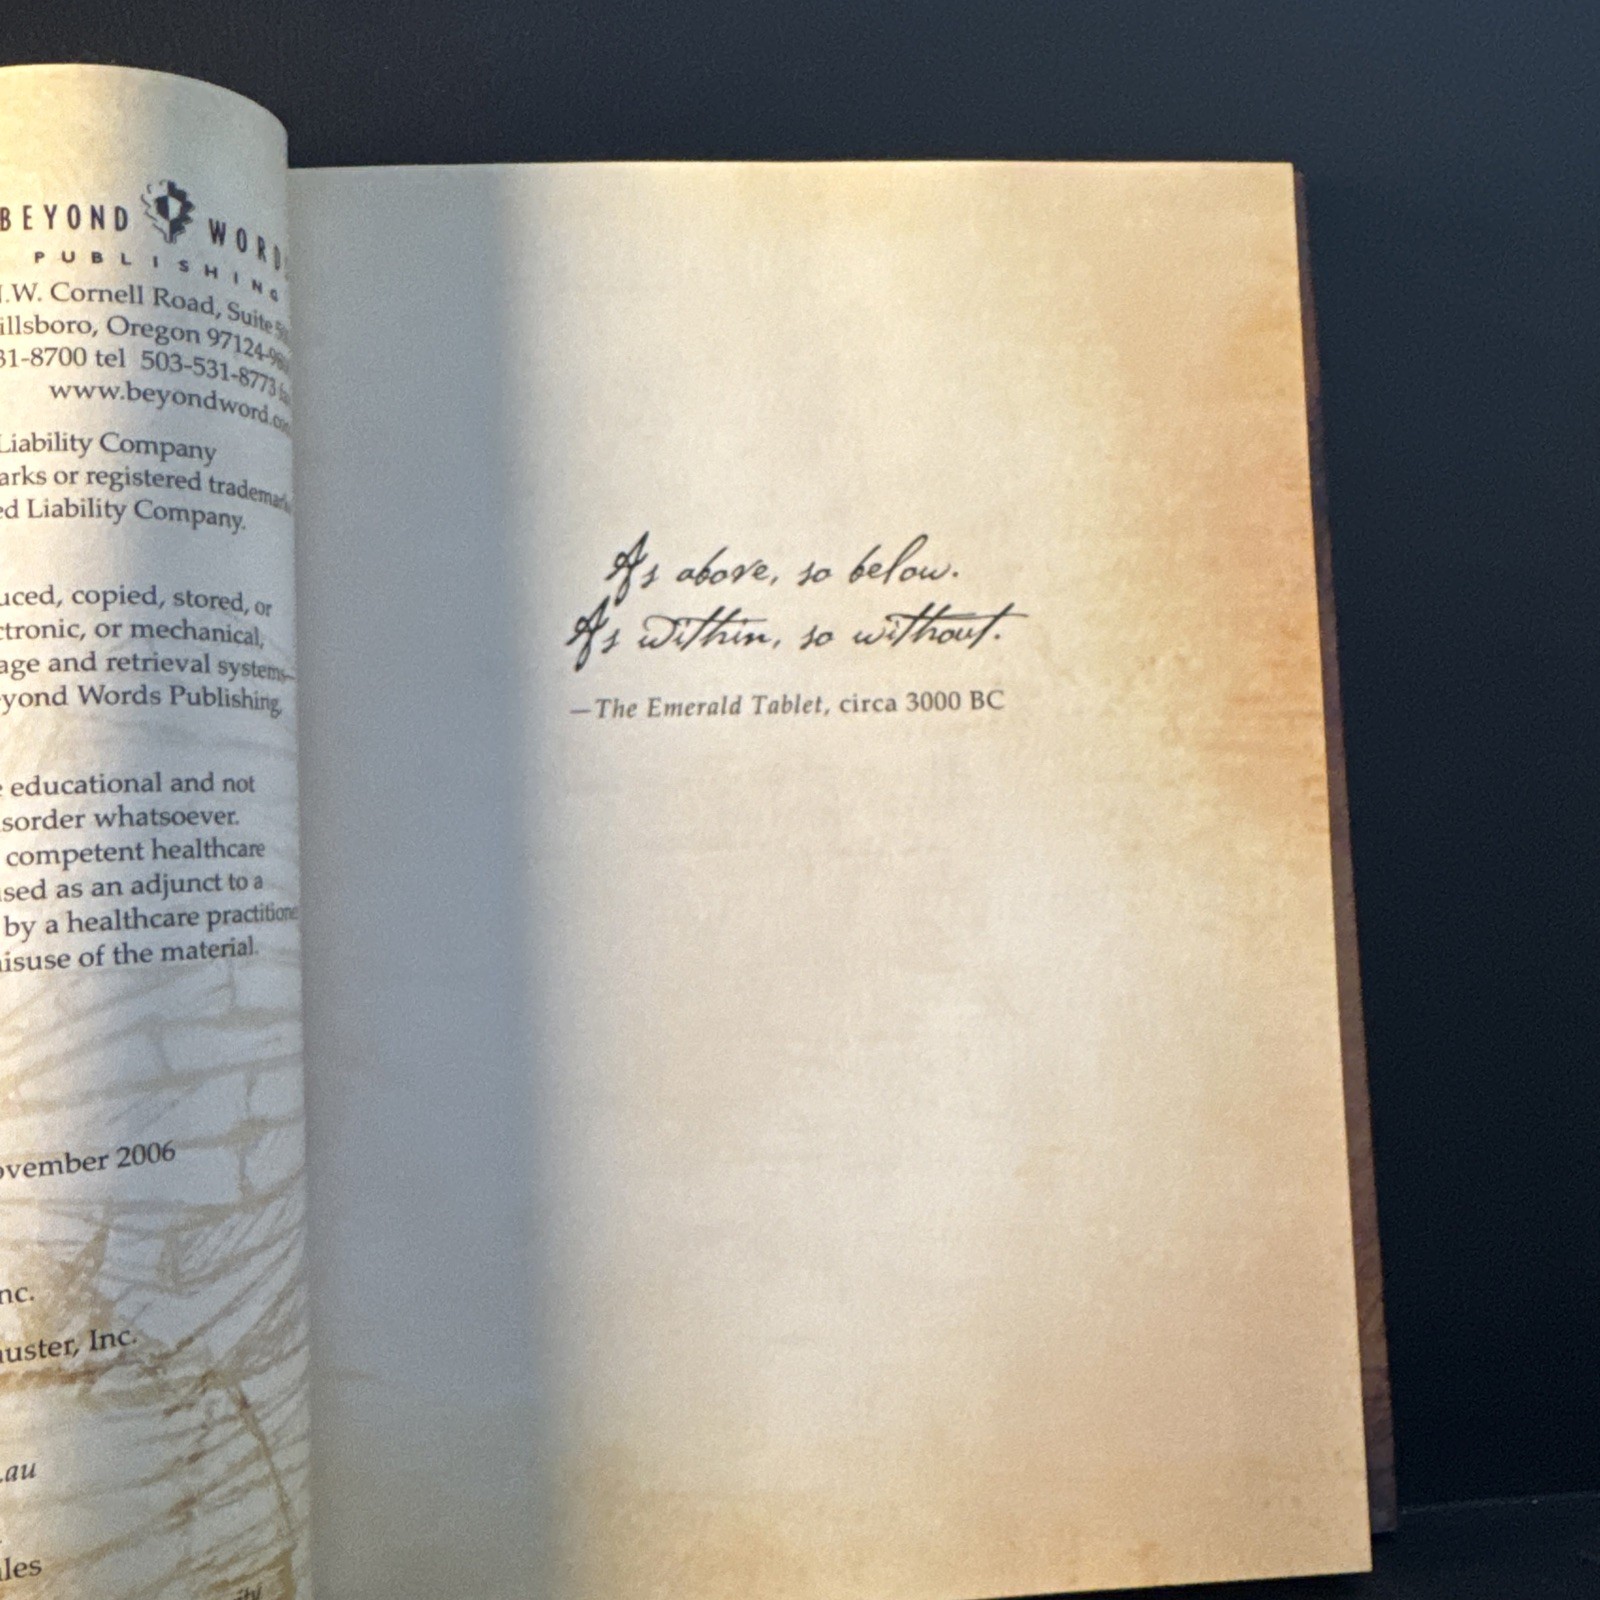 BEYOND WORDS
PUBLISHING
N.W. Cornell Road, Suite
Oregon 97124
tel 503-531-8773
www.beyondword.com
Liability Company
or registered trademarks
Liability Company.
copied, stored, or
or mechanical,
and retrieval systems—
Words Publishing,
educational and not
whatsoever.
competent healthcare
as an adjunct to a
by a healthcare practitioner
of the material.
2006
Inc.
Inc.
As above, so below.
As within, so without.
—The Emerald Tablet, circa 3000 BC